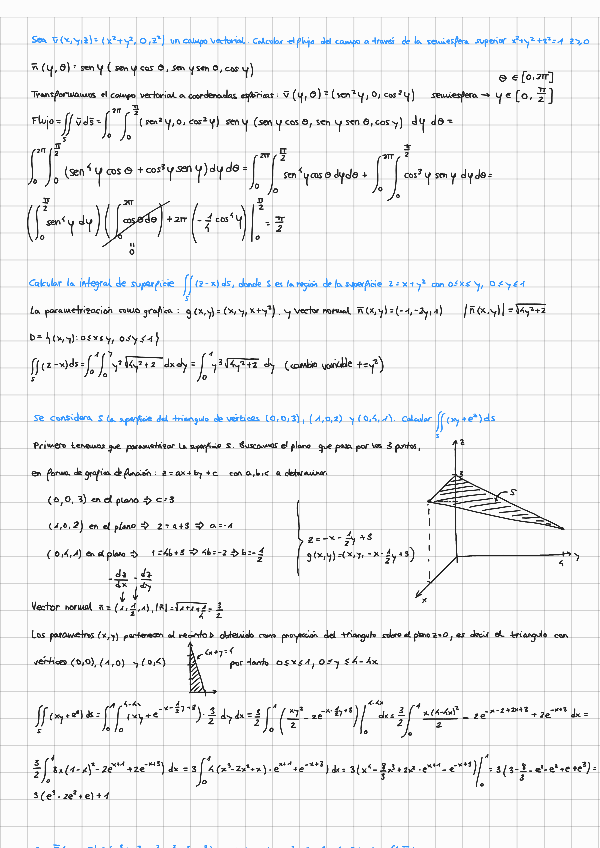 Sea v̄(x,y,z) = (x²+y², 0, z²) un campo vectorial. Calcular el flujo del campo a través de la semiesfera superior x²+y²+z²=1 z≥0
n̄(φ,θ) = sen φ (sen φ cos θ, sen φ sen θ, cos φ)
θ ∈ [0,2π]
Transformamos el campo vectorial a coordenadas esféricas: v̄(φ,θ) = (sen²φ, 0, cos²φ) semiesfera → φ ∈ [0, π/2]
Flujo = ∬_S v̄ ds̄ = ∫₀^{2π} ∫₀^{π/2} (sen²φ, 0, cos²φ) sen φ (sen φ cos θ, sen φ sen θ, cos φ) dφ dθ =
∫₀^{2π} ∫₀^{π/2} (sen⁴φ cos θ + cos³φ sen φ) dφ dθ = ∫₀^{2π} ∫₀^{π/2} sen⁴φ cos θ dφ dθ + ∫₀^{2π} ∫₀^{π/2} cos³φ sen φ dφ dθ =
(∫₀^{π/2} sen⁴φ dφ) (∫₀^{2π} cos θ dθ) + 2π (-1/4 cos⁴φ) |₀^{π/2} = π/2
0
Calcular la integral de superficie ∬_S (z-x) ds, donde S es la región de la superficie z = x+y² con 0≤x≤y, 0≤y≤1
La parametrización como gráfica: g(x,y) = (x,y,x+y²). y vector normal n̄(x,y) = (-1,-2y,1) |n̄(x,y)| = √4y²+2
D = {(x,y): 0≤x≤y, 0≤y≤1}
∬_S (z-x) ds = ∫₀¹ ∫₀^y y² √4y²+2 dx dy = ∫₀¹ y³ √4y²+2 dy (cambio variable t=y²)
Se considera S la superficie del triangulo de vértices (0,0,3), (1,0,2) y (0,4,1). Calcular ∬_S (xy+e^z) ds
Primero tenemos que parametrizar la superficie S. Buscamos el plano que pasa por los 3 puntos,
en forma de gráfica de función: z = ax+by+c con a,b,c a determinar.
(0,0,3) en el plano ⇒ c=3
(1,0,2) en el plano ⇒ 2 = a+3 ⇒ a=-1
(0,4,1) en el plano ⇒ 1=4b+3 ⇒ 4b=-2 ⇒ b=-1/2
z = -x - 1/2 y + 3
g(x,y) = (x,y, -x - 1/2 y + 3)
z
3
S
4
y
x
-dz/dx -dz/dy
Vector normal n̄ = (1, 1/2, 1), |n̄| = √1+1+1/4 = 3/2
Los parametros (x,y) pertenecen al recinto D obtenido como proyección del triangulo sobre el plano z=0, es decir el triangulo con
vértices (0,0), (1,0) y (0,4) 4x+y=4 por tanto 0≤x≤1, 0≤y≤4-4x
∬_S (xy+e^z) ds = ∫₀¹ ∫₀^{4-4x} (xy + e^{-x-1/2y+3}) · 3/2 dy dx = 3/2 ∫₀¹ (xy²/2 - 2e^{-x-1/2y+3}) |₀^{4-4x} dx = 3/2 ∫₀¹ x(4-4x)²/2 - 2e^{-x-2+2x+3} + 2e^{-x+3} dx =
3/2 ∫₀¹ 8x(1-x)² - 2e^{x+1} + 2e^{-x+3}) dx = 3 ∫₀¹ 4(x³-2x²+x) - e^{x+1} + e^{-x+3}) dx = 3(x⁴ - 8/3 x³ + 2x² - e^{x+1} - e^{-x+3}) |₀¹ = 3(3 - 8/3 - e² - e² + e + e³) =
3(e³ - 2e² + e) + 1